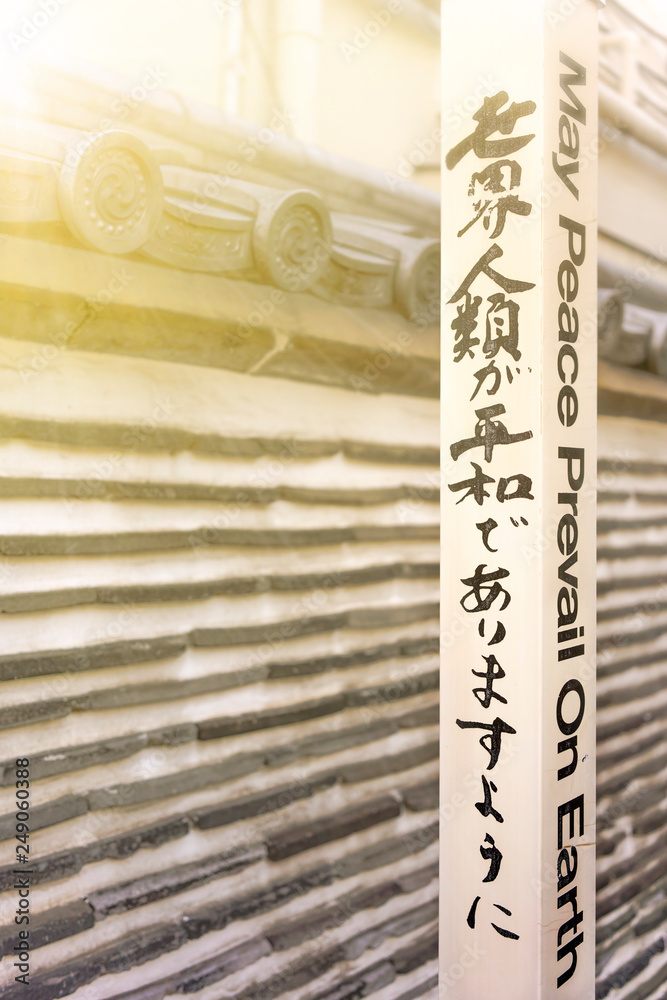 世界人類が平和でありますように
May Peace Prevail On Earth
Adobe Stock | #249060388